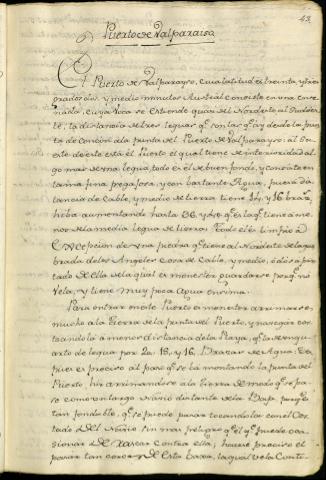 43
Puerto de Valparaiso
El Puerto de Valparayso, cuia latitud es treinta y tres
grados dos y medio minutos Austral consiste en una ense-
nada, cuya boca se estiende quasi del Nordeste al Sudoes-
te, la distancia de tres leguas qe. son las qe. ay desde la pun-
ta de Concon ala punta del Puerto de Valparayso: al
este de esta está el Puerto el qual tiene de interioridad al
go mas de una legua, todo el es de buen fondo, y consiste en
larina fina pegajosa, y con bastante Agua, pues a dis-
tancia de Cable, y medio de tierra tiene 14, y 16 brazas,
hiba aumentando hasta 36 y 40 qe. es la qe. tiene a me-
nos de la media legua de tierra: todo el es limpio a
Excepcion de una piedra qe. tiene al Nordeste de la que
brada de los Angeles cosa de Cable, y medio, o dos apar-
tado de ella de la qual es menester guardarse porqe. no
Vela, y tiene muy poca Agua encima.
Para entrar en este Puerto es menester arrimarse
mucho a la tierra de la punta del Puerto, y navegar cos-
teandola a menos distancia de la Playa, qe. la de un qu-
arto de legua por 20, 18, y 16, Brazas de Agua: Des-
pues es preciso al pare qe. se ba montando la punta del
Puerto, hir arrimandose a la tierra de modo qe. se pa-
se como un largo Navio distante de la Baja, porqe. es
tan fondable, qe. se puede pasar tocandola casi el Cos-
tado del Navio sin mas peligro qe. el qe. puede oca-
sionar el Barar contra ella; hace preciso el
pasar tan cerca de esta baxa, la qual vela Conti-